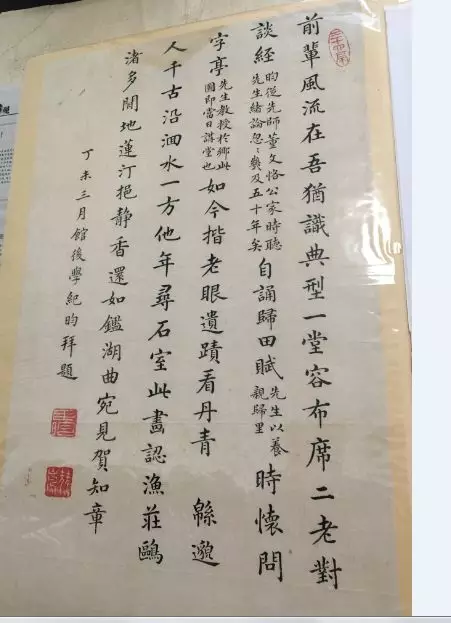 前輩風流在吾猶識典型一堂容布席二老對
談經昀從先師董文恪公家時聽先生緒論忽〻幾及五十年矣自誦歸田賦先生以養親歸里時懷問
字亭先生教授於鄉此圖即當日講堂也如今揩老眼遺蹟看丹青 緜邈
人千古沿洄水一方他年尋石室此畫認漁莊鷗
渚多閒地蓮汀挹静香還如鑑湖曲宛見賀知章
丁未三月館後學紀昀拜題